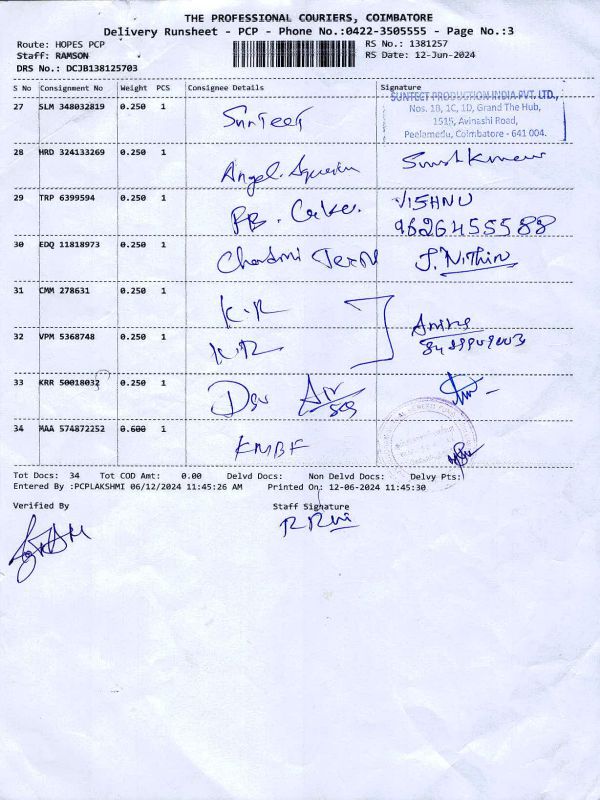 THE PROFESSIONAL COURIERS, COIMBATORE
Delivery Runsheet - PCP - Phone No.:0422-3505555 - Page No.:3
Route: HOPES PCP RS No.: 1381257
Staff: RAMSON RS Date: 12-Jun-2024
DRS No.: DCJB138125703
S No Consignment No Weight PCS Consignee Details Signature
SUNTECT PRODUCTION INDIA PVT. LTD.,
27 SLM 348032819 0.250 1 Nos. 1B, 1C, 1D, Grand The Hub,
1515, Avinashi Road,
Peelamedu, Coimbatore - 641 004.
28 HRD 324133269 0.250 1
Angel
29 TRP 6399594 0.250 1 VISHNU
9626455588
30 EDQ 11818973 0.250 1
J. Nithin
31 CMM 278631 0.250 1
K.R
32 VPM 5368748 0.250 1
K.R
33 KRR 50018032 0.250 1
34 MAA 574872252 0.600 1
KMBF
Tot Docs: 34 Tot COD Amt: 0.00 Delvd Docs: Non Delvd Docs: Delvy Pts:
Entered By :PCPLAKSHMI 06/12/2024 11:45:26 AM Printed On: 12-06-2024 11:45:30
Verified By Staff Signature